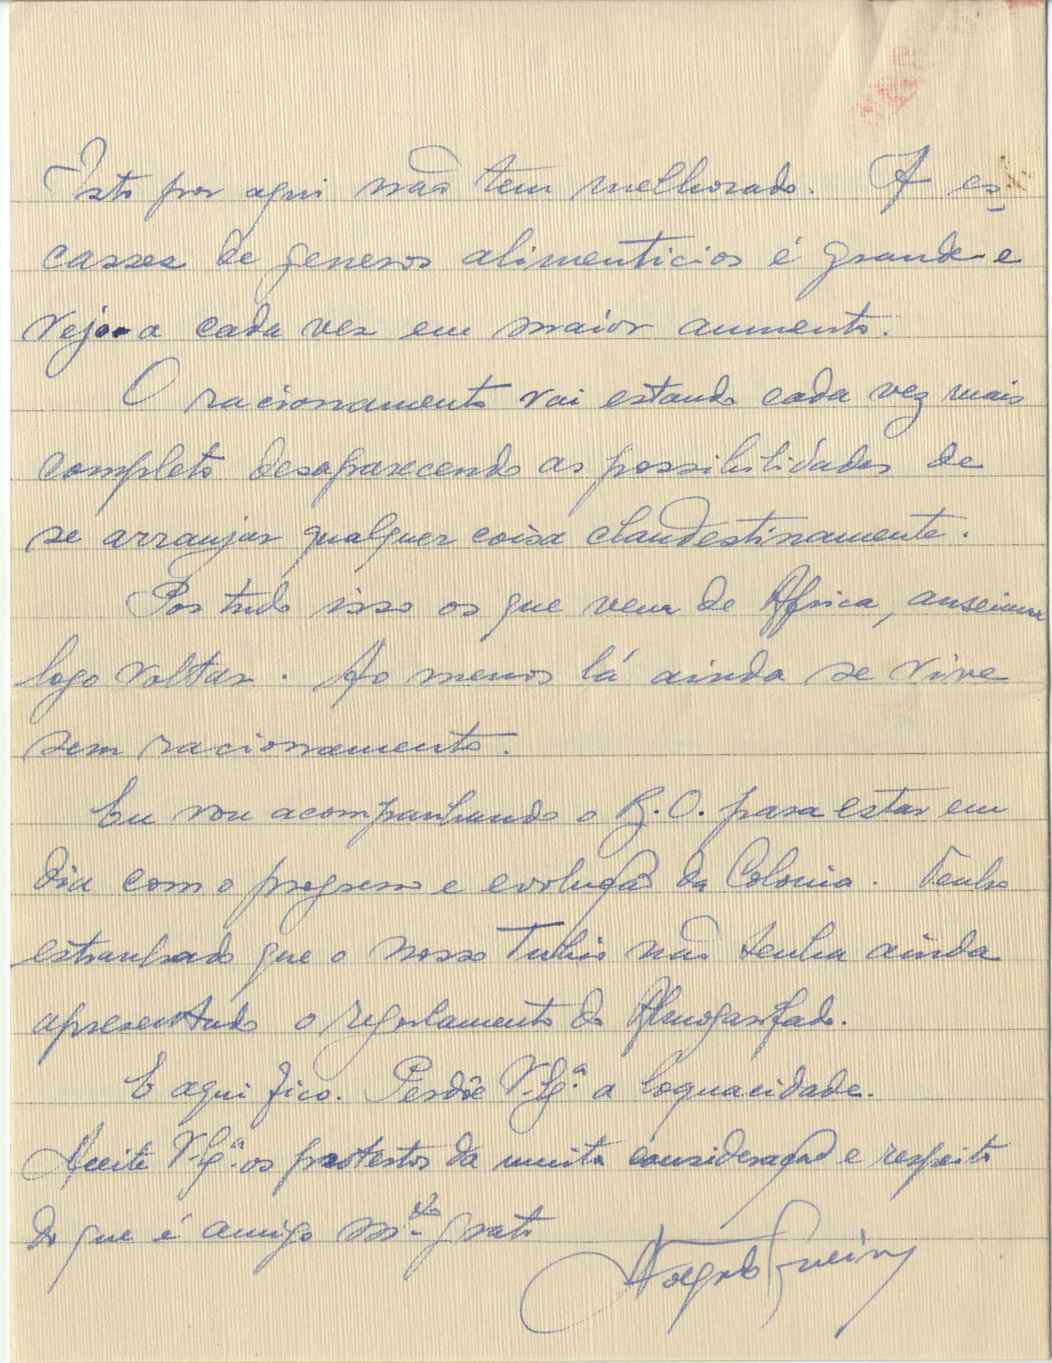 Isto por aqui não tem melhorado. A es-
cassez de generos alimenticios é grande e
vejo-a cada vez em maior aumento.
O racionamento vai estando cada vez mais
completo desaparecendo as possibilidades de
se arranjar qualquer coisa clandestinamente.
Por tudo isso os que vem de Africa, anseiam
logo voltar. Ao menos lá ainda se vive
sem racionamento.
Eu vou acompanhando o B.O. para estar em
dia com o progresso e evolução da Colonia. Tenho
estranhado que o nosso Tulio não tenha ainda
apresentado o regulamento do Almoxarifado.
E aqui fico. Perdõe V.Exª. a loquacidade.
Aceite V.Exª. os protestos da muita consideração e respeito
do que é amigo mto. grato